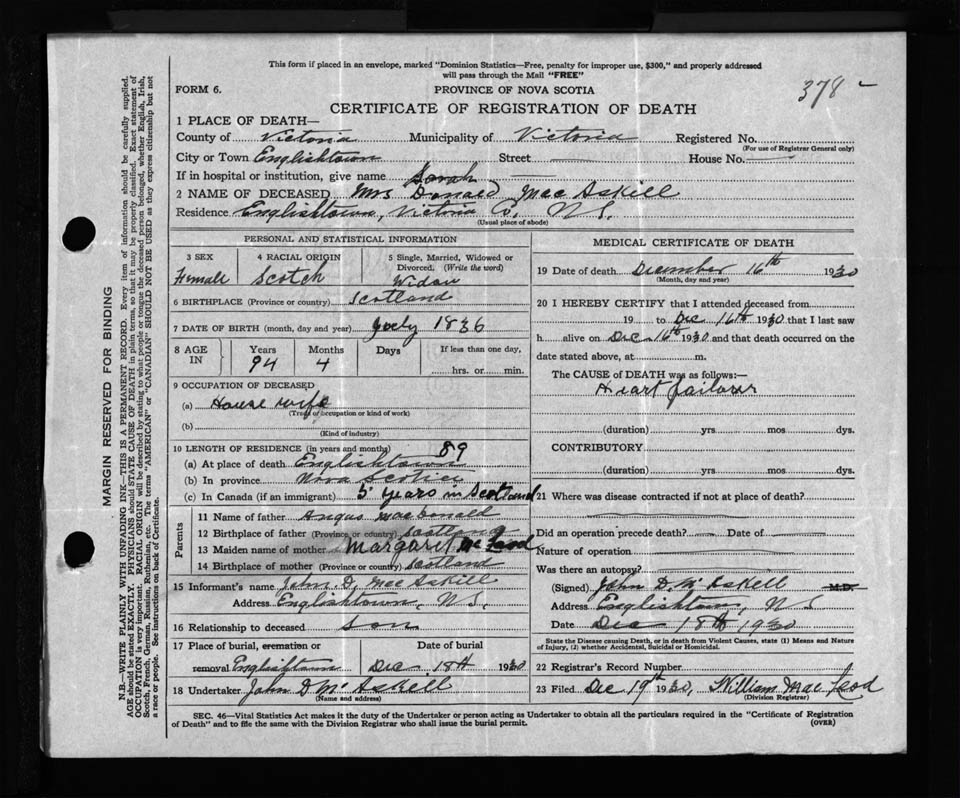 This form if placed in an envelope, marked "Dominion Statistics—Free, penalty for improper use, $300," and properly addressed
will pass through the Mail "FREE"
378
FORM 6.
PROVINCE OF NOVA SCOTIA
CERTIFICATE OF REGISTRATION OF DEATH
1 PLACE OF DEATH—
County of Victoria Municipality of Victoria Registered No.
(For use of Registrar General only)
City or Town Englishtown Street House No.
If in hospital or institution, give name
Sarah
2 NAME OF DECEASED Mrs Donald MacAskill
Residence Englishtown, Victoria Co. N.S.
(Usual place of abode)
PERSONAL AND STATISTICAL INFORMATION
3 SEX 4 RACIAL ORIGIN 5 Single, Married, Widowed or Divorced. (Write the word)
Female Scotch Widow
6 BIRTHPLACE (Province or country) Scotland
7 DATE OF BIRTH (month, day and year) July 1836
8 AGE IN Years Months Days If less than one day,
94 4 hrs. or min.
9 OCCUPATION OF DECEASED
(a) House wife
(Trade or occupation or kind of work)
(b)
(Kind of industry)
10 LENGTH OF RESIDENCE (in years and months) 89
(a) At place of death Englishtown
(b) In province Nova Scotia
(c) In Canada (if an immigrant) 5 years in Scotland
Parents
11 Name of father Angus MacDonald
12 Birthplace of father (Province or country) Scotland
13 Maiden name of mother Margaret McLeod
14 Birthplace of mother (Province or country) Scotland
15 Informant's name John D. MacAskill
Address Englishtown, N.S.
16 Relationship to deceased son
17 Place of burial, cremation or removal Englishtown Date of burial Dec 18th 1930
18 Undertaker John D McAskill
(Name and address)
MEDICAL CERTIFICATE OF DEATH
19 Date of death December 16th 1930
(Month, day and year)
20 I HEREBY CERTIFY that I attended deceased from
19 to Dec 16th 1930 that I last saw
h alive on Dec 16th 1930 and that death occurred on the
date stated above, at m.
The CAUSE OF DEATH was as follows:—
Heart failure
(duration) yrs mos dys.
CONTRIBUTORY
(duration) yrs mos dys.
21 Where was disease contracted if not at place of death?
Did an operation precede death? Date of
Nature of operation
Was there an autopsy?
(Signed) John D. McAskell M.D.
Address Englishtown, N S
Date Dec 18th 1930
State the Disease causing Death, or in death from Violent Causes, state (1) Means and Nature
of Injury, (2) whether Accidental, Suicidal or Homicidal.
22 Registrar's Record Number
23 Filed Dec 19th 1930, William MacLeod
(Division Registrar)
SEC. 46—Vital Statistics Act makes it the duty of the Undertaker or person acting as Undertaker to obtain all the particulars required in the "Certificate of Registration
of Death" and to file the same with the Division Registrar who shall issue the burial permit.
(OVER)
MARGIN RESERVED FOR BINDING
N.B.—WRITE PLAINLY WITH UNFADING INK—THIS IS A PERMANENT RECORD. Every item of information should be carefully supplied.
AGE should be stated EXACTLY. PHYSICIANS should STATE CAUSE OF DEATH in plain terms, so that it may be properly classified. Exact statement of
OCCUPATION is very important. RACIAL ORIGIN will be described by stating to what people or tongue the deceased person belonged, whether English, Irish,
Scotch, French, German, Russian, Ruthenian, etc. The terms "AMERICAN" or "CANADIAN" SHOULD NOT BE USED as they express citizenship but not
a race or people. See instructions on back of Certificate.